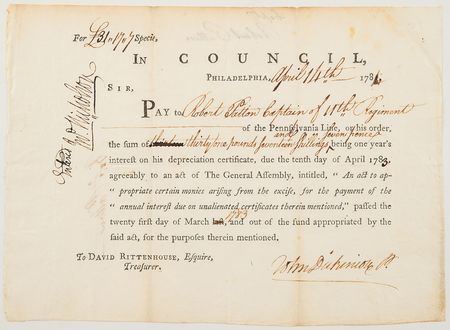 For £31„17„7 Specie,
IN COUNCIL,
PHILADELPHIA, April 14th 178
SIR,
PAY to Robert Patton Captain of 10th Regiment
of the Pennsylvania Line, or his order,
and seven pence
the sum of thirty one pounds seventeen shillings being one year's
interest on his depreciation certificate, due the tenth day of April 1783
agreeably to an act of The General Assembly, intitled, "An act to ap-
"propriate certain monies arising from the excise, for the payment of the
"annual interest due on unalienated certificates therein mentioned," passed the
1783
twenty first day of March last, and out of the fund appropriated by the
said act, for the purposes therein mentioned.
To DAVID RITTENHOUSE, Esquire,
Treasurer.
John Dickinson